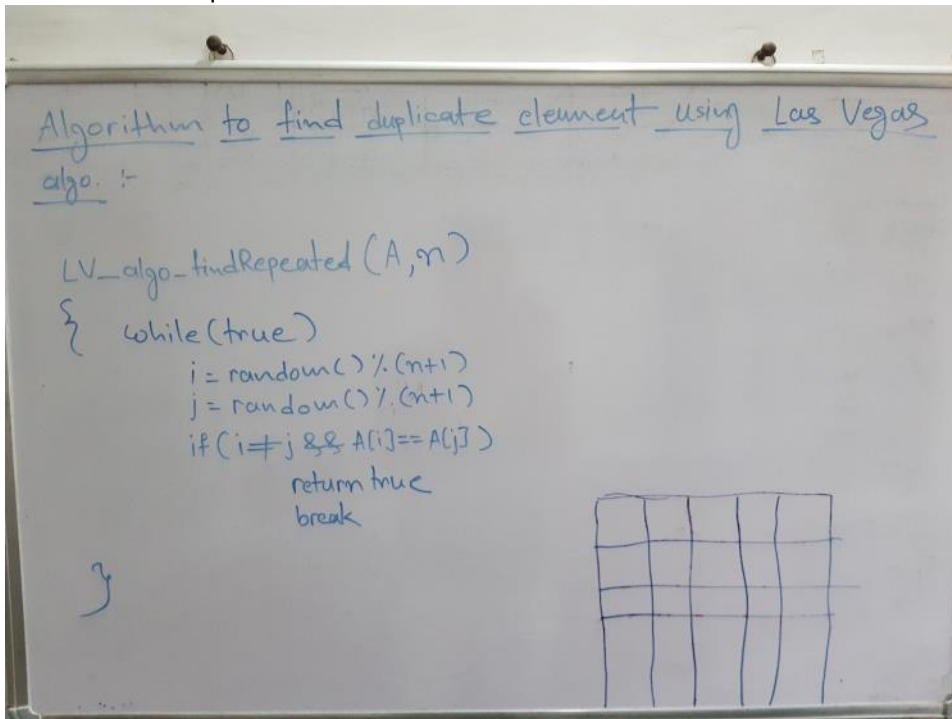 Algorithm to find duplicate element using Las Vegas
algo. :-
LV_algo_findRepeated (A,n)
{ while (true)
i = random() % (n+1)
j = random() % (n+1)
if (i ≠ j && A[i] == A[j])
return true
break
}